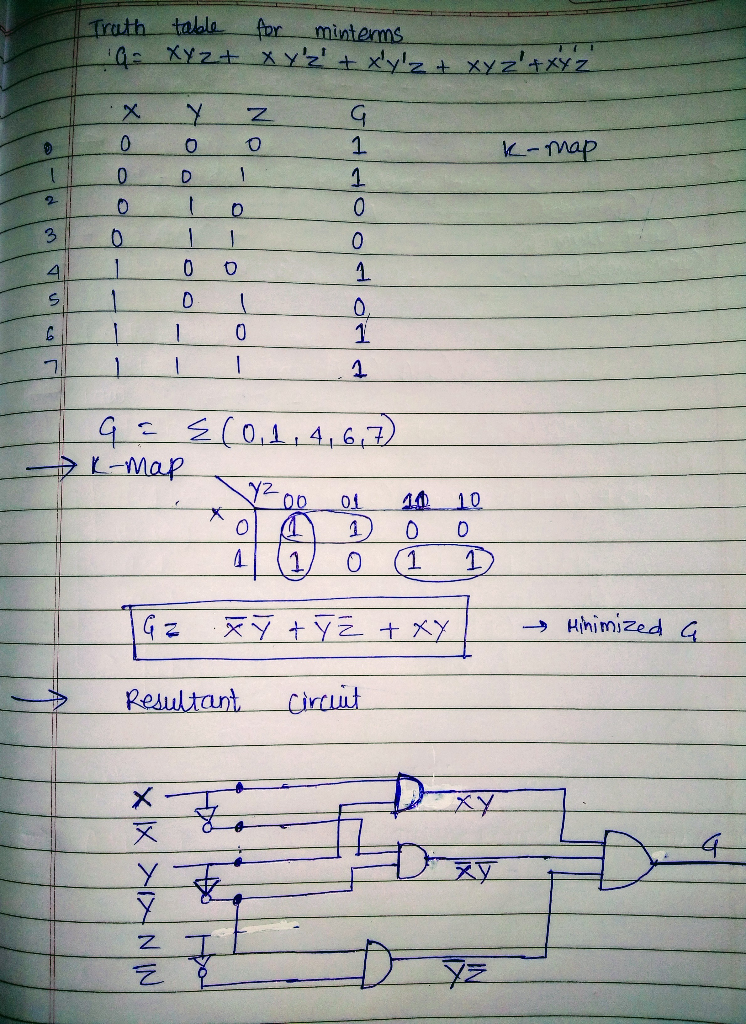 Truth table for minterms
G = XYZ + XY'Z' + X'Y'Z + XYZ' + X'Y'Z'
X Y Z G
0 0 0 0 1 K-map
1 0 0 1 1
2 0 1 0 0
3 0 1 1 0
4 1 0 0 1
5 1 0 1 0
6 1 1 0 1
7 1 1 1 1
G = Σ(0,1,4,6,7)
→ K-map
YZ 00 01 11 10
X
0 1 1 0 0
1 1 0 1 1
G = X̅Y̅ + Y̅Z̅ + XY → Minimized G
→ Resultant circuit
X
XY
X̅
G
Y
X̅Y̅
Y̅
Z
Z̅
Y̅Z̅